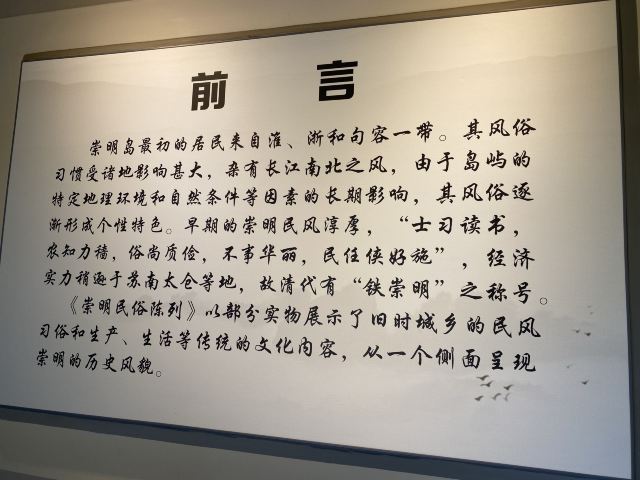 前言
崇明岛最初的居民来自淮、浙和句容一带。其风俗
习惯受诸地影响甚大，杂有长江南北之风，由于岛屿的
特定地理环境和自然条件等因素的长期影响，其风俗逐
渐形成个性特色。早期的崇明民风淳厚，“士习读书，
农知力穑，俗尚质俭，不事华丽，民任侠好施”，经济
实力稍逊于苏南太仓等地，故清代有“铁崇明”之称号。
《崇明民俗陈列》以部分实物展示了旧时城乡的民风
习俗和生产、生活等传统的文化内容，从一个侧面呈现
崇明的历史风貌。